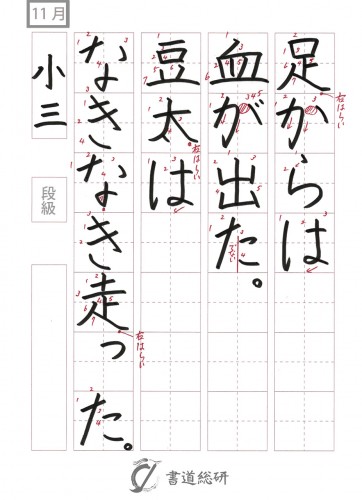 足からは
血が出た。
豆太は
なきなき走った。
11月
小三
段級
右はらい
右はらい
右はらい
書道総研